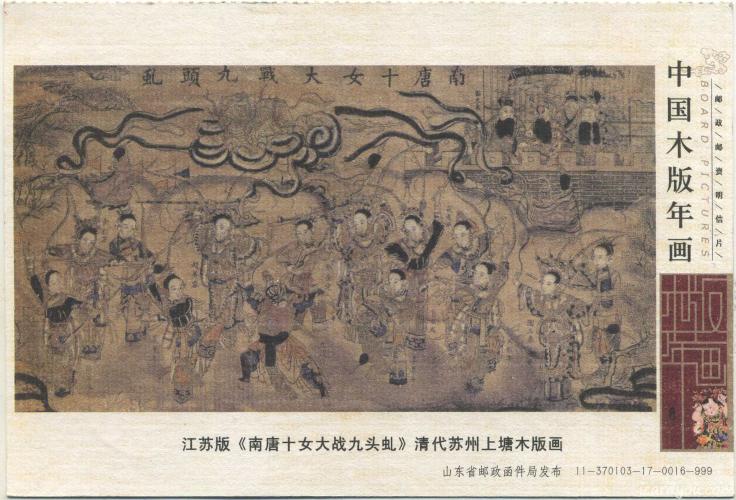 虬頭九戰大女十唐南
中国木版年画
BOARD PICTURES
/邮/政/邮/资/明/信/片/
版画
江苏版《南唐十女大战九头虬》清代苏州上塘木版画
山东省邮政函件局发布 11-370103-17-0016-999